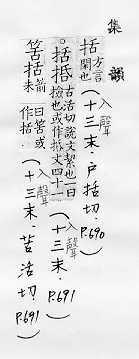 集韻
括 方言閉也 (入聲十三末．戶括切．P.690)
。括抵 古活切說文絜也一曰檢也或作抵文四十一 (入聲十三末．P.691)
筈括 箭末曰筈或作括． (入聲十三末．苦活切．P.691)